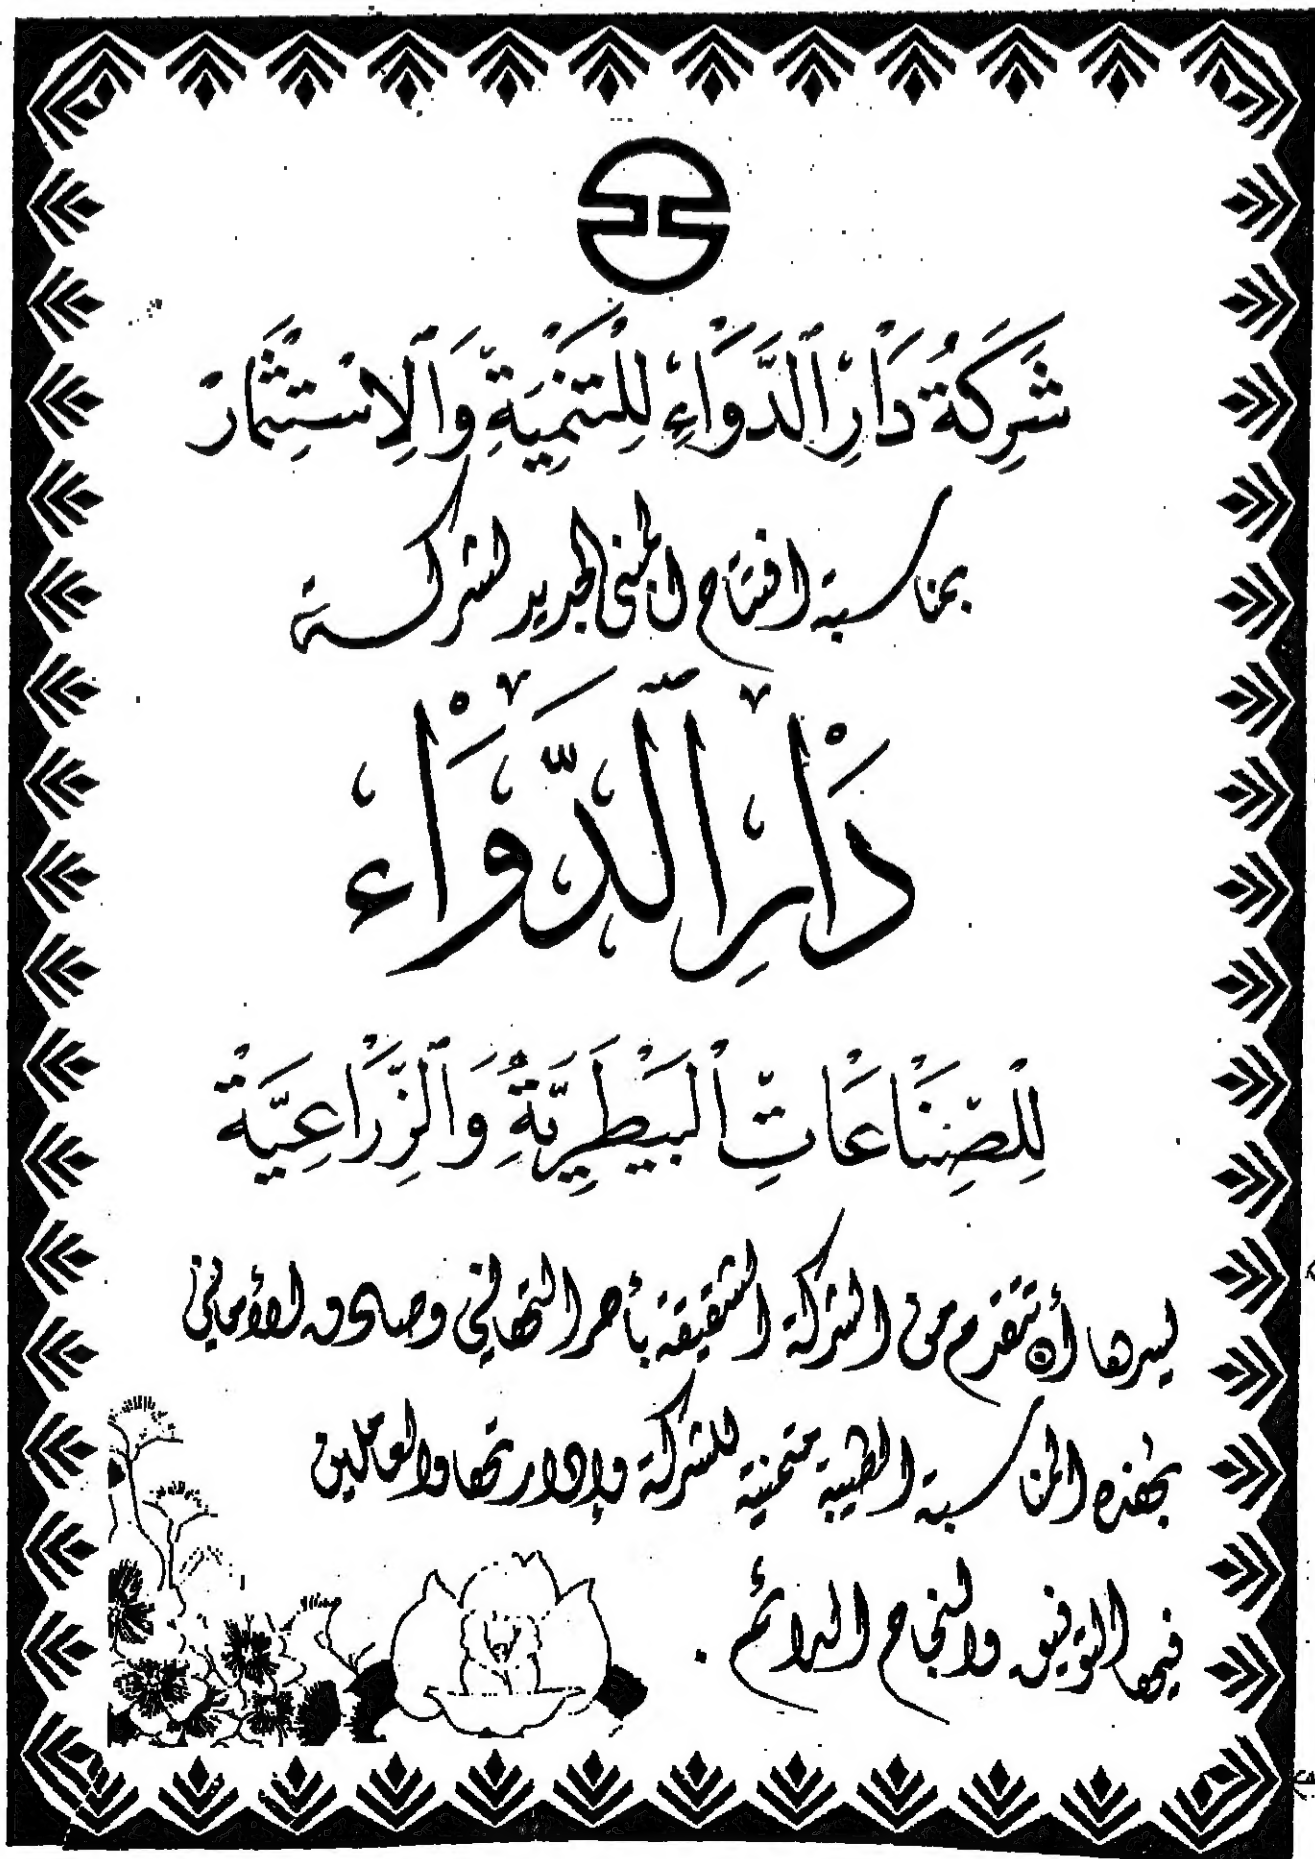 شَرِكَةُ دَارِ الدَّوَاءِ لِلتَّنْمِيَةِ وَالِاسْتِثْمَار
بمناسبة افتتاح المبنى الجديد لشركة
دَارِ الدَّوَاء
لِلصِّنَاعَاتِ الْبَيْطَرِيَّةِ وَالزِّرَاعِيَّة
ليسرها أن تتقدم من الشركة الشقيقة بأحر التهاني وصادق الأماني
بهذه المناسبة الطيبة متمنية للشركة وإدارتها والعاملين
فيها التوفيق والنجاح الدائم .